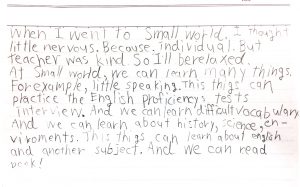 When I went to Small world. I thought
little nervous. Because, individual. But
teacher was kind. So I'll berelaxed.
At Small world, we can learn many things.
Forexample, little speaking. This thigs can
practice the English proficiency tests
interview. And we can learn difficult vocabulary.
And we can learn about history, science, en-
viroments. This thigs can learn about english
and another subject. And we can read
book!